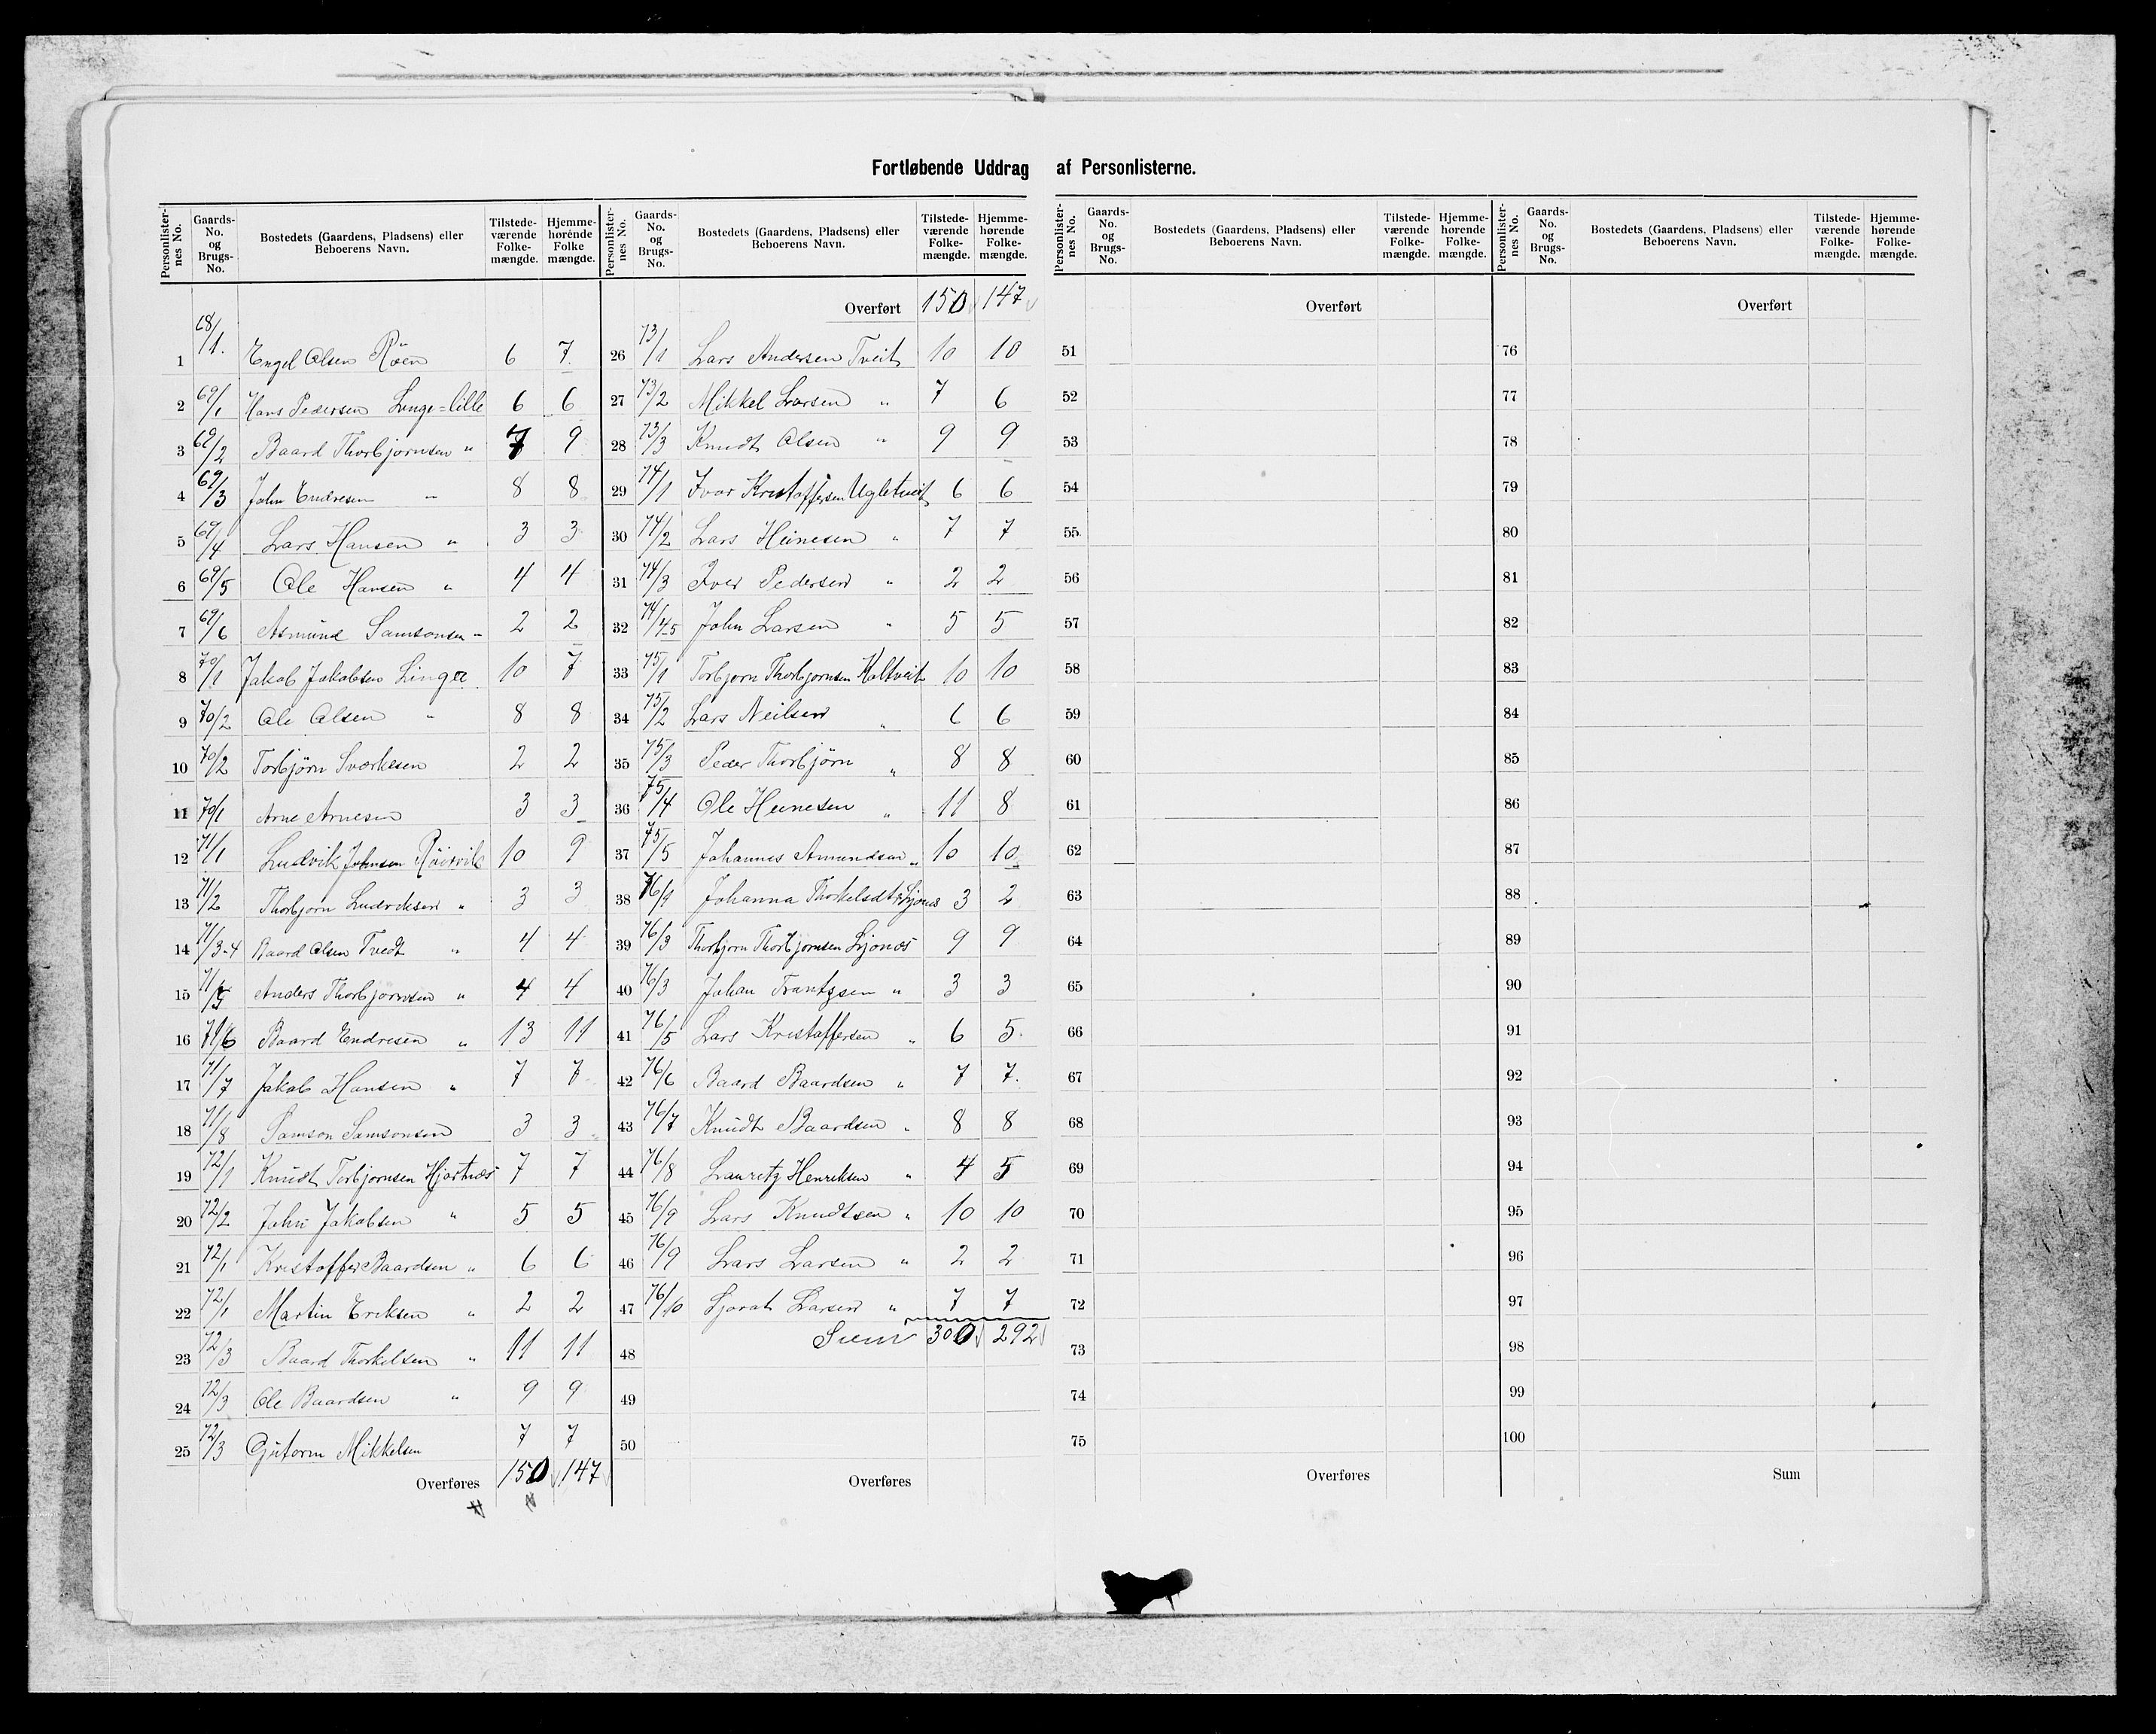 Fortløbende Uddrag af Personlisterne.
Personlister-nes No. Gaards-No. og Brugs-No. Bostedets (Gaardens, Pladsens) eller Beboerens Navn. Tilstede-værende Folke-mængde. Hjemme-hørende Folke mængde.
1 68/1. Engel Olsen Röen 6 7
2 69/1 Hans Pedersen Linge=lille 6 6
3 69/2 Baard Thorbjørnsen " 7 9
4 69/3 John Endresen " 8 8
5 69/4 Lars Hansen " 3 3
6 69/5 Ole Hansen " 4 4
7 69/6 Asmund Samsonsen " 2 2
8 70/1 Jakob Jakobsen Linge 10 7
9 70/2 Ole Olsen " 8 8
10 70/2 Torbjörn Sværkesen 2 2
11 70/1 Arne Arnesen 3 3
12 71/1 Ludvik Johnsen Röisvik 10 9
13 71/2 Thorbjørn Ludviksen " 3 3
14 71/3-4 Baard Olsen Tvedt " 4 4
15 71/5 Anders Thorbjørnsen " 4 4
16 71/6 Baard Endresen " 13 11
17 71/7 Jakob Hansen " 7 7
18 71/8 Samson Samsonsen 3 3
19 72/1 Knudt Torbjørnsen Hjartnæs 7 7
20 72/2 John Jakobsen " 5 5
21 72/1 Kristoffer Baardsen " 6 6
22 72/1 Martin Eriksen " 2 2
23 72/3 Baard Thorkelsen " 11 11
24 72/3 Ole Baardsen " 9 9
25 72/3 Gutorm Mikkelsen 7 7
Overføres 150 147
Personlister-nes No. Gaards-No. og Brugs-No. Bostedets (Gaardens, Pladsens) eller Beboerens Navn. Tilstede-værende Folke-mængde. Hjemme-hørende Folke-mængde.
Overført 150 147
26 73/1 Lars Andersen Tveit 10 10
27 73/2 Mikkel Larsen " 7 6
28 73/3 Knudt Olsen " 9 9
29 74/1 Ivar Kristoffersen Ugletveit 6 6
30 74/2 Lars Heinesen " 7 7
31 74/3 Iver Pedersen " 2 2
32 74/4-5 John Larsen " 5 5
33 75/1 Torbjørn Thorbjørnsen Koltveit 10 10
34 75/2 Lars Neilsen " 6 6
35 75/3 Peder Thorbjörn " 8 8
36 75/4 Ole Heinesen " 11 8
37 75/5 Johannes Amundsen " 10 10
38 76/9 Johanna Thorkelsdtr Ljones 3 2
39 76/3 Thorbjørn Thorbjørnsen Ljonæs 9 9
40 76/3 Johan Frantzsen " 3 3
41 76/5 Lars Kristoffersen " 6 5
42 76/6 Baard Baardsen " 7 7
43 76/7 Knudt Baardsen " 8 8
44 76/8 Lauritz Henriksen " 4 5
45 76/9 Lars Knudtsen " 10 10
46 76/9 Lars Larsen " 2 2
47 76/10 Sjovat Larsen " 7 7
48 Sum 300 292
49
50
Overføres
Personlister-nes No. Gaards-No. og Brugs-No. Bostedets (Gaardens, Pladsens) eller Beboerens Navn. Tilstede-værende Folke-mængde. Hjemme-hørende Folke-mængde.
Overført
51
52
53
54
55
56
57
58
59
60
61
62
63
64
65
66
67
68
69
70
71
72
73
74
75
Overføres
Personlister-nes No. Gaards-No. og Brugs-No. Bostedets (Gaardens, Pladsens) eller Beboerens Navn. Tilstede-værende Folke-mængde. Hjemme-hørende Folke-mængde.
Overført
76
77
78
79
80
81
82
83
84
85
86
87
88
89
90
91
92
93
94
95
96
97
98
99
100
Sum